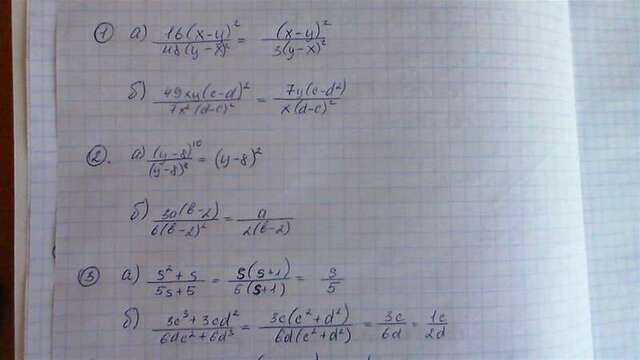 ① а) 16(x-y)²/48(y-x)² = (x-y)²/3(y-x)²
б) 49xy(c-d)²/7x²(d-c)² = 7y(c-d²)/x(d-c)²
②. а) (y-8)¹⁰/(y-8)⁸ = (y-8)²
б) 3a(b-2)/6(b-2)² = a/2(b-2)
③ а) s²+s/5s+5 = s(s+1)/5(s+1) = s/5
б) 3c³+3cd²/6dc²+6d³ = 3c(c²+d²)/6d(c²+d²) = 3c/6d = 1c/2d